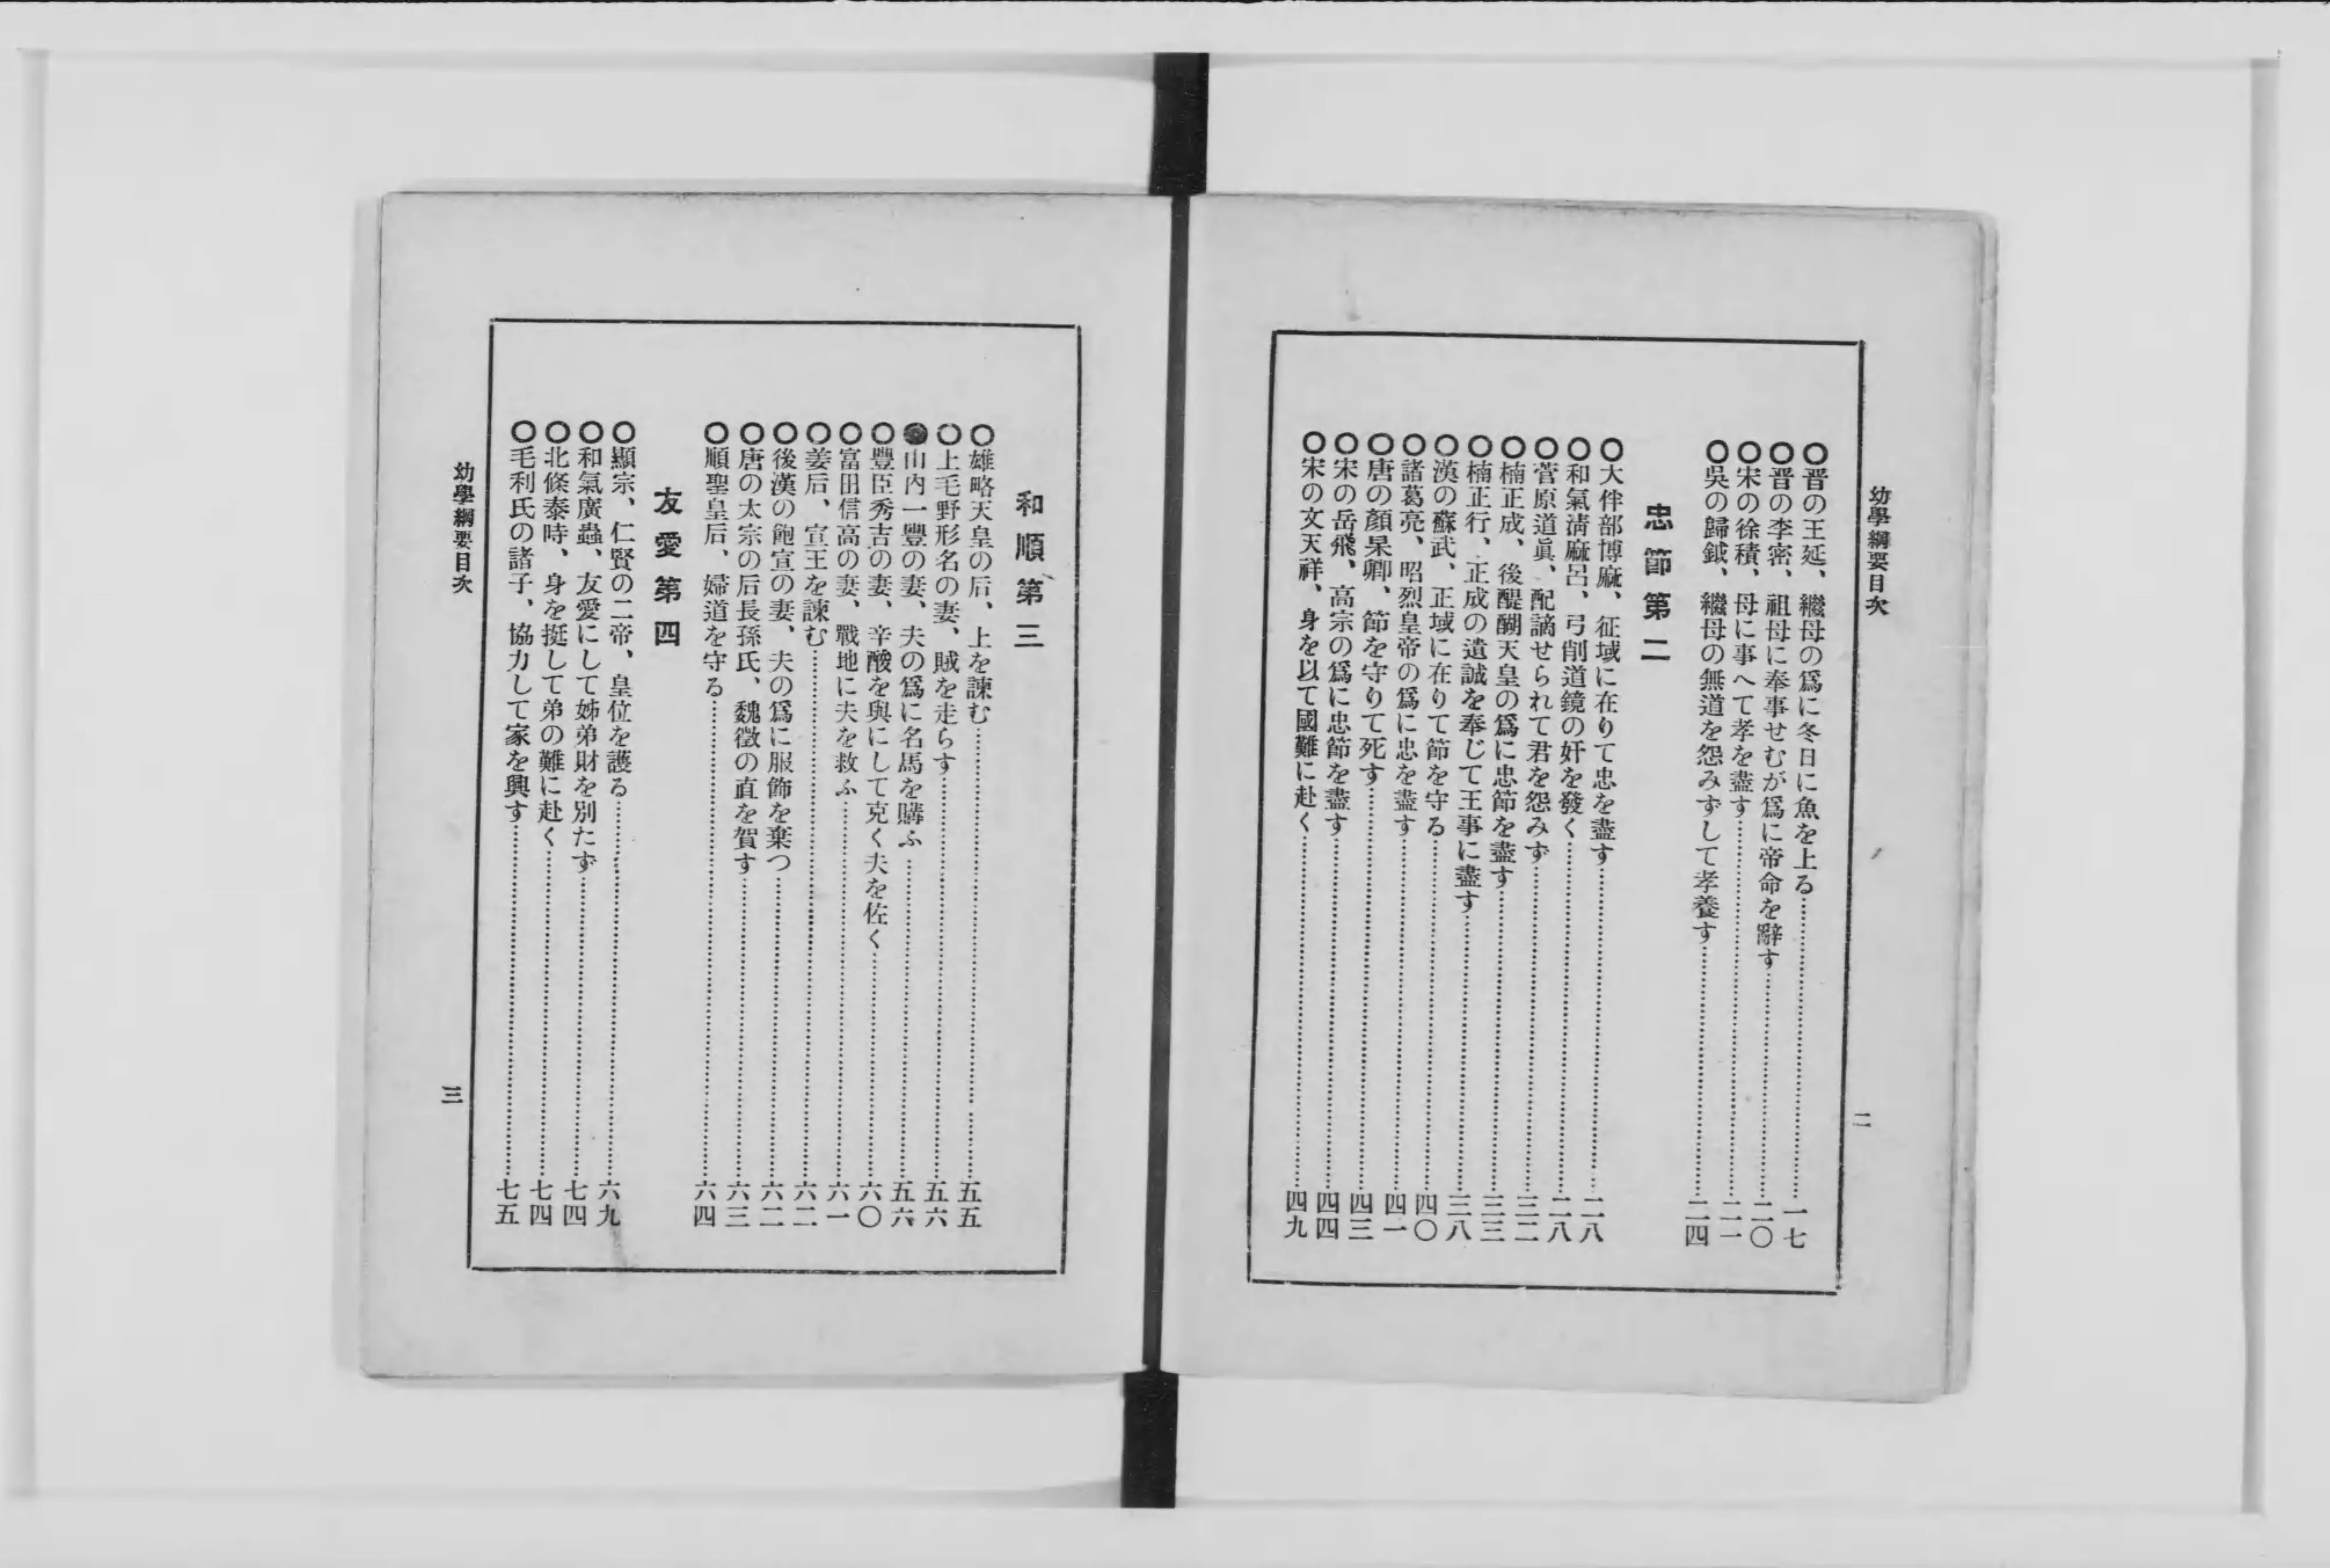 幼學綱要目次
二
〇晋の王延、繼母の爲に冬日に魚を上る……一七
〇晋の李密、祖母に奉事せむが爲に帝命を辭す……二〇
〇宋の徐積、母に事へて孝を盡す……二一
〇吳の歸鉞、繼母の無道を怨みずして孝養す……二四
忠節第二
〇大伴部博麻、征域に在りて忠を盡す……二八
〇和氣淸麻呂、弓削道鏡の奸を發く……二八
〇菅原道眞、配謫せられて君を怨みず……三二
〇楠正成、後醍醐天皇の爲に忠節を盡す……三三
〇楠正行、正成の遺誠を奉じて王事に盡す……三八
〇漢の蘇武、正域に在りて節を守る……四〇
〇諸葛亮、昭烈皇帝の爲に忠を盡す……四一
〇唐の顏杲卿、節を守りて死す……四三
〇宋の岳飛、高宗の爲に忠節を盡す……四四
〇宋の文天祥、身を以て國難に赴く……四九
和順第三
〇雄略天皇の后、上を諫む……五五
〇上毛野形名の妻、賊を走らす……五六
●山内一豐の妻、夫の爲に名馬を購ふ……五六
〇豐臣秀吉の妻、辛酸を與にして克く夫を佐く……六〇
〇富田信高の妻、戰地に夫を救ふ……六一
〇姜后、宣王を諫む……六二
〇後漢の鮑宣の妻、夫の爲に服飾を棄つ……六二
〇唐の太宗の后長孫氏、魏徵の直を賀す……六三
〇順聖皇后、婦道を守る……六四
友愛第四
〇顯宗、仁賢の二帝、皇位を護る……六九
〇和氣廣蟲、友愛にして姊弟財を別たず……七四
〇北條泰時、身を挺して弟の難に赴く……七四
〇毛利氏の諸子、協力して家を興す……七五
幼學綱要目次
三